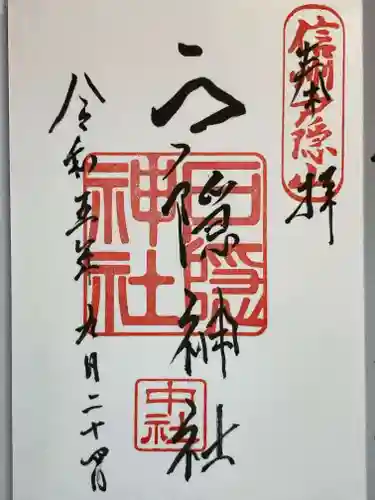 奉拝
信州戸隠山
戸隠神社
戸隠神社
中社
令和五年九月二十四日